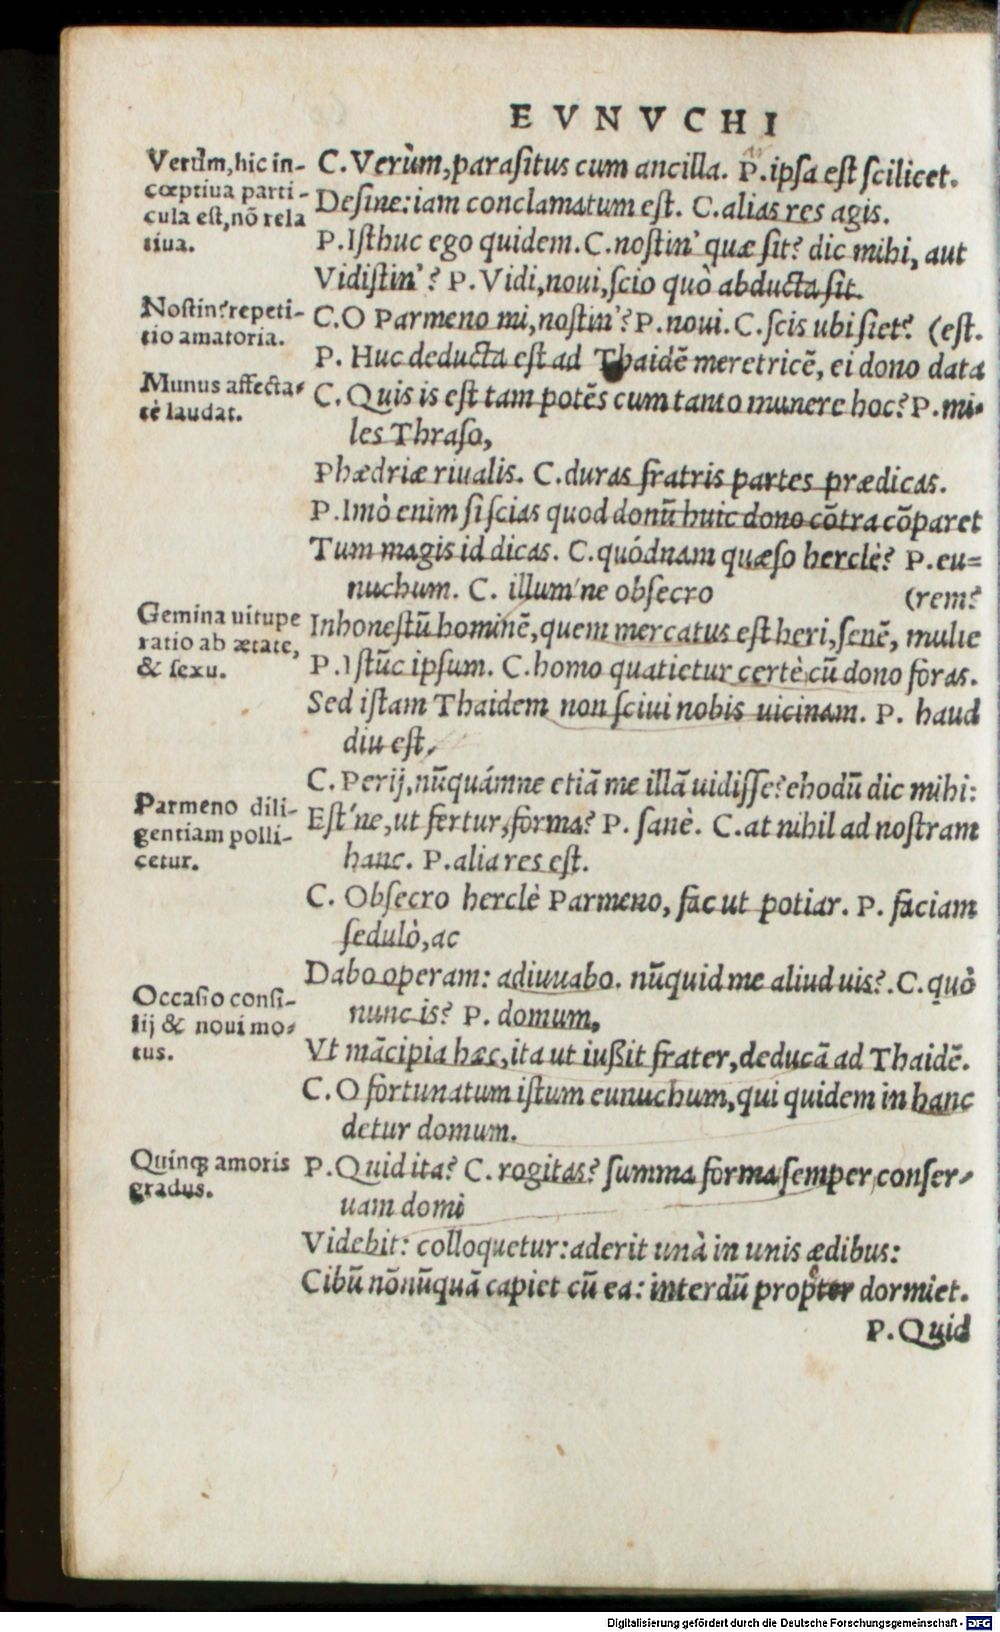 EVNVCHI
Verùm, hic in-
cœptiua parti-
cula est, nō rela
tiua.
C. Verùm, parasitus cum ancilla. P. ipsa est scilicet.
Desine: iam conclamatum est. C. alias res agis.
P. Isthuc ego quidem. C. nostin' quæ sit? dic mihi, aut
Vidistin'? P. Vidi, noui, scio quò abducta sit.
Nostin? repeti-
tio amatoria.
C. O Parmeno mi, nostin'? P. noui. C. scis ubi siet? (est.
P. Huc deducta est ad Thaidē meretricē, ei dono data
Munus affecta-
tè laudat.
C. Quis is est tam potēs cum tanto munere hoc? P. mi-
les Thraso,
Phædriæ riualis. C. duras fratris partes prædicas.
P. Imò enim si scias quod donū huic dono cōtra cōparet
Tum magis id dicas. C. quódnam quæso herclè? P. eu=
nuchum. C. illum'ne obsecro (rem?
Gemina uitupe
ratio ab ætate,
& sexu.
Inhonestū hominē, quem mercatus est heri, senē, mulie
P. Istūc ipsum. C. homo quatietur certè cū dono foras.
Sed istam Thaidem non sciui nobis uicinam. P. haud
diu est.
C. Perij, nūquámne etiā me illā uidisse? ehodū dic mihi:
Parmeno dili-
gentiam polli-
cetur.
Est'ne, ut fertur, forma? P. sanè. C. at nihil ad nostram
hanc. P. alia res est.
C. Obsecro herclè Parmeno, fac ut potiar. P. faciam
sedulò, ac
Dabo operam: adiuuabo. nūquid me aliud uis?. C. quò
Occasio consi-
lij & noui mo-
tus.
nunc is? P. domum,
Vt mācipia hæc, ita ut iußit frater, deducā ad Thaidē.
C. O fortunatum istum eunuchum, qui quidem in hanc
detur domum.
Quinqꝫ amoris
gradus.
P. Quid ita? C. rogitas? summa forma semper conser-
uam domi
Videbit: colloquetur: aderit unà in unis ædibus:
Cibū nōnūquā capiet cū ea: interdū propter dormiet.
P. Quid
Digitalisierung gefördert durch die Deutsche Forschungsgemeinschaft - DFG